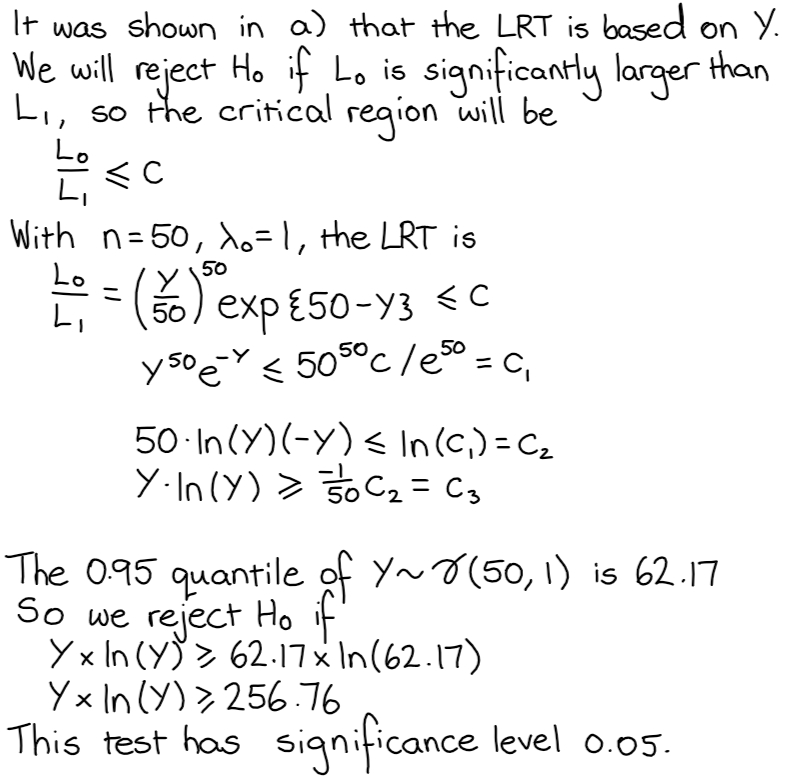 It was shown in a) that the LRT is based on Y.
We will reject H₀ if L₀ is significantly larger than
L₁, so the critical region will be
L₀/L₁ ⩽ C
With n=50, λ₀=1, the LRT is
L₀/L₁ = (Y/50)⁵⁰ exp{50-Y} ⩽ C
Y⁵⁰e⁻ʸ ⩽ 50⁵⁰C/e⁵⁰ = C₁
50·ln(Y)(-Y) ⩽ ln(C₁) = C₂
Y·ln(Y) ⩾ -1/50 C₂ = C₃
The 0.95 quantile of Y~γ(50,1) is 62.17
So we reject H₀ if
Y×ln(Y) ⩾ 62.17×ln(62.17)
Y×ln(Y) ⩾ 256.76
This test has significance level 0.05.